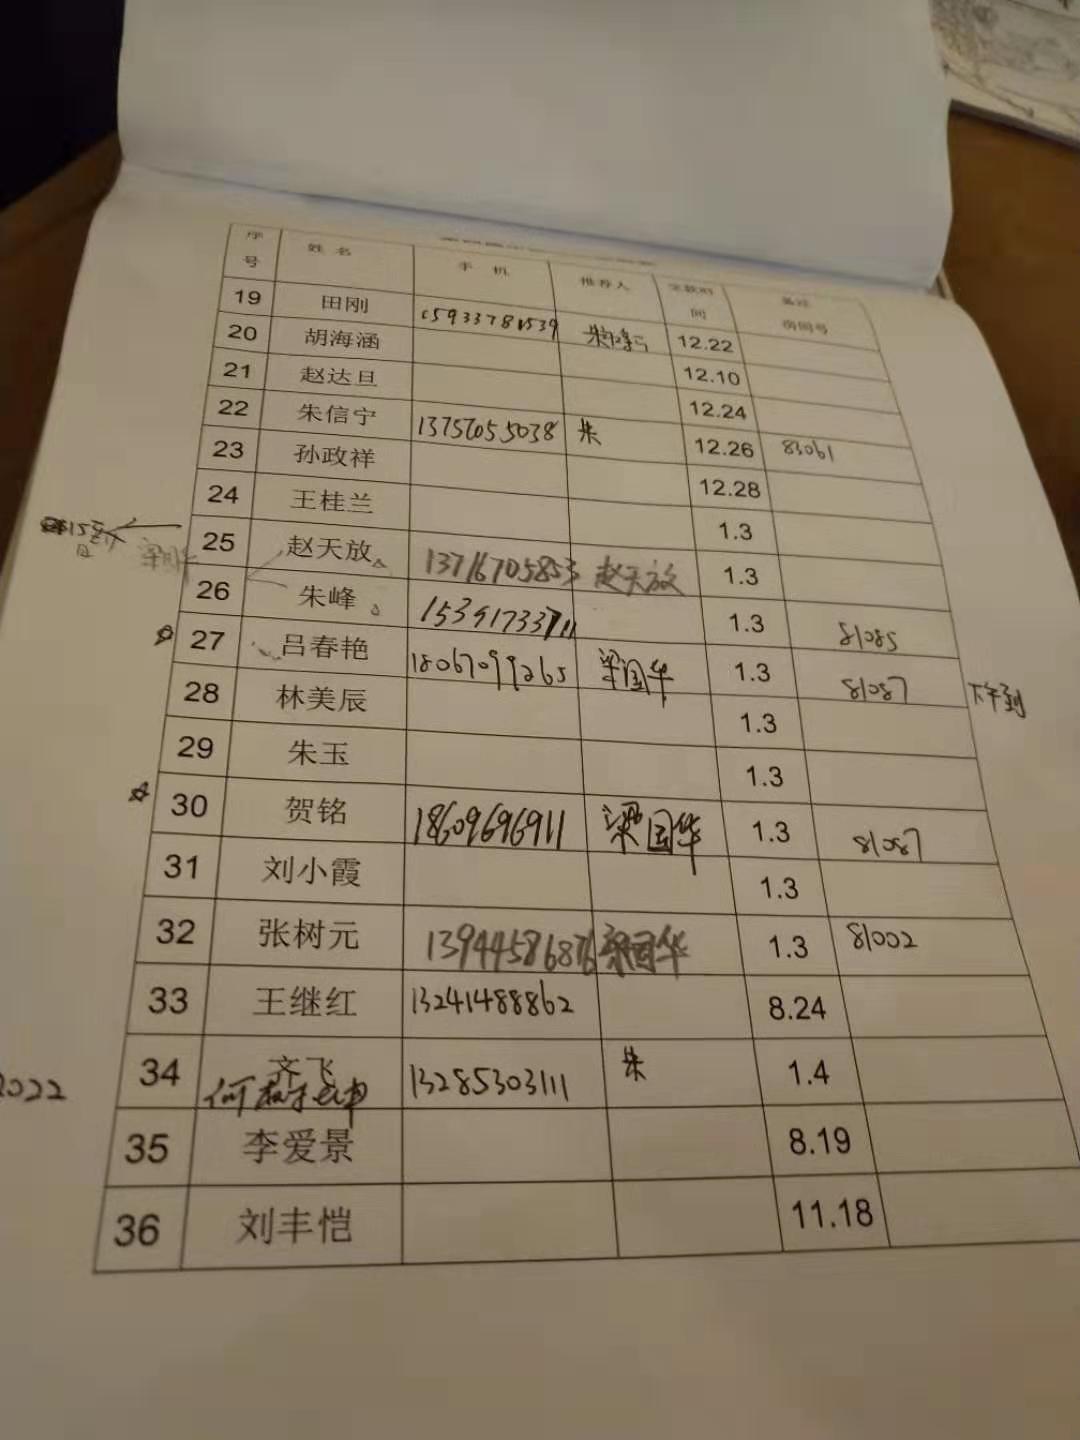 序号 姓名 手机 推荐人 交款时间 备注 房间号
19 田刚 15933781539 12.22
20 胡海涵 12.10
21 赵达旦 12.24
22 朱信宁 13757055038 朱 12.26 83061
23 孙政祥 12.28
24 王桂兰 1.3
25 赵天放 13716705853 赵天放 1.3
26 朱峰 15391733711 1.3 81085
27 吕春艳 18067099265 梁国华 1.3 81087 下午到
28 林美辰 1.3
29 朱玉 1.3
30 贺铭 18609696911 梁国华 1.3 81087
31 刘小霞 1.3
32 张树元 13944586876 梁国华 1.3 81002
33 王继红 13241488862 8.24
34 齐飞 13285303111 朱 1.4
2022
35 李爱景 8.19
36 刘丰恺 11.18